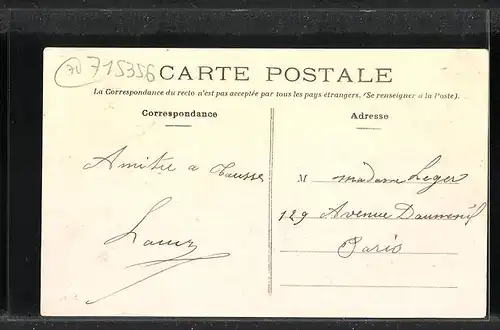 70 715356
CARTE POSTALE
La Correspondance du recto n'est pas acceptée par tous les pays étrangers. (Se renseigner à la Poste).
Correspondance
Adresse
Amitié a tousse
M madame Leger
129 Avenue Daumenil
Paris